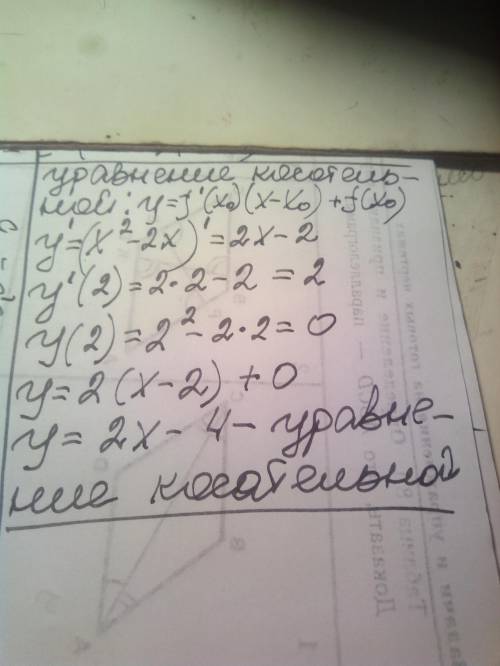 уравнение касатель-
ной: y=f'(x₀)(x-x₀)+f(x₀)
y'=(x²-2x)'=2x-2
y'(2)=2·2-2=2
y(2)=2²-2·2=0
y=2(x-2)+0
y=2x-4-уравне-
ние касательной